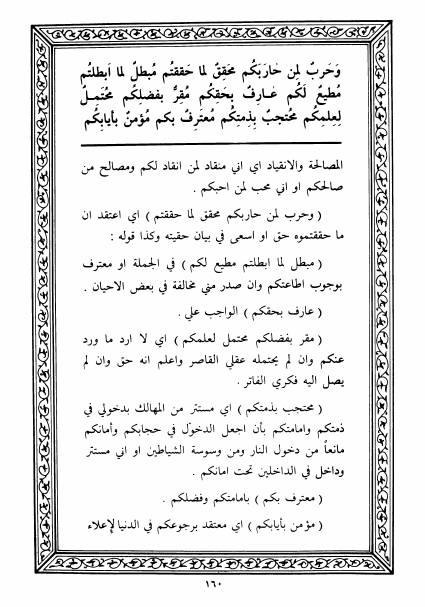 وَحَربٌ لِمن حَارَبَكُم محَقِقٌ لما حَققتُم مُبطلٌ لما اَبطلتُم
مُطيعٌ لَكُم عَـارِفٌ بِحَقكُم مُقِرٌّ بفضلِكُم مُحْتَمِـلٌ
لِعِلمِكُم مُحتجبٌ بِذِمتِكُم مُعتَرِفٌ بكم مُؤمنٌ بأيابِكُم
المصالحة والانقياد اي اني منقاد لمن انقاد لكم ومصالح من
صالحكم او اني محب لمن احبكم .
( وحرب لمن حاربكم محقق لما حققتم ) اي اعتقد ان
ما حققتموه حق او اسعى في بيان حقيته وكذا قوله :
( مبطل لما ابطلتم مطيع لكم ) في الجملة او معترف
بوجوب اطاعتكم وان صدر مني مخالفة في بعض الاحيان .
( عارف بحقكم ) الواجب علي .
( مقر بفضلكم محتمل لعلمكم ) اي لا ارد ما ورد
عنكم وان لم يحتمله عقلي القاصر واعلم انه حق وان لم
يصل اليه فكري الفاتر .
( محتجب بذمتكم ) اي مستتر من المهالك بدخولي في
ذمتكم وامامتكم بأن اجعل الدخول في حجابكم وأمانكم
مانعاً من دخول النار ومن وسوسة الشياطين او اني مستتر
وداخل في الداخلين تحت امانكم .
( معترف بكم ) بامامتكم وفضلكم .
( مؤمن بأيابكم ) اي معتقد برجوعكم في الدنيا لإعلاء
١٦٠